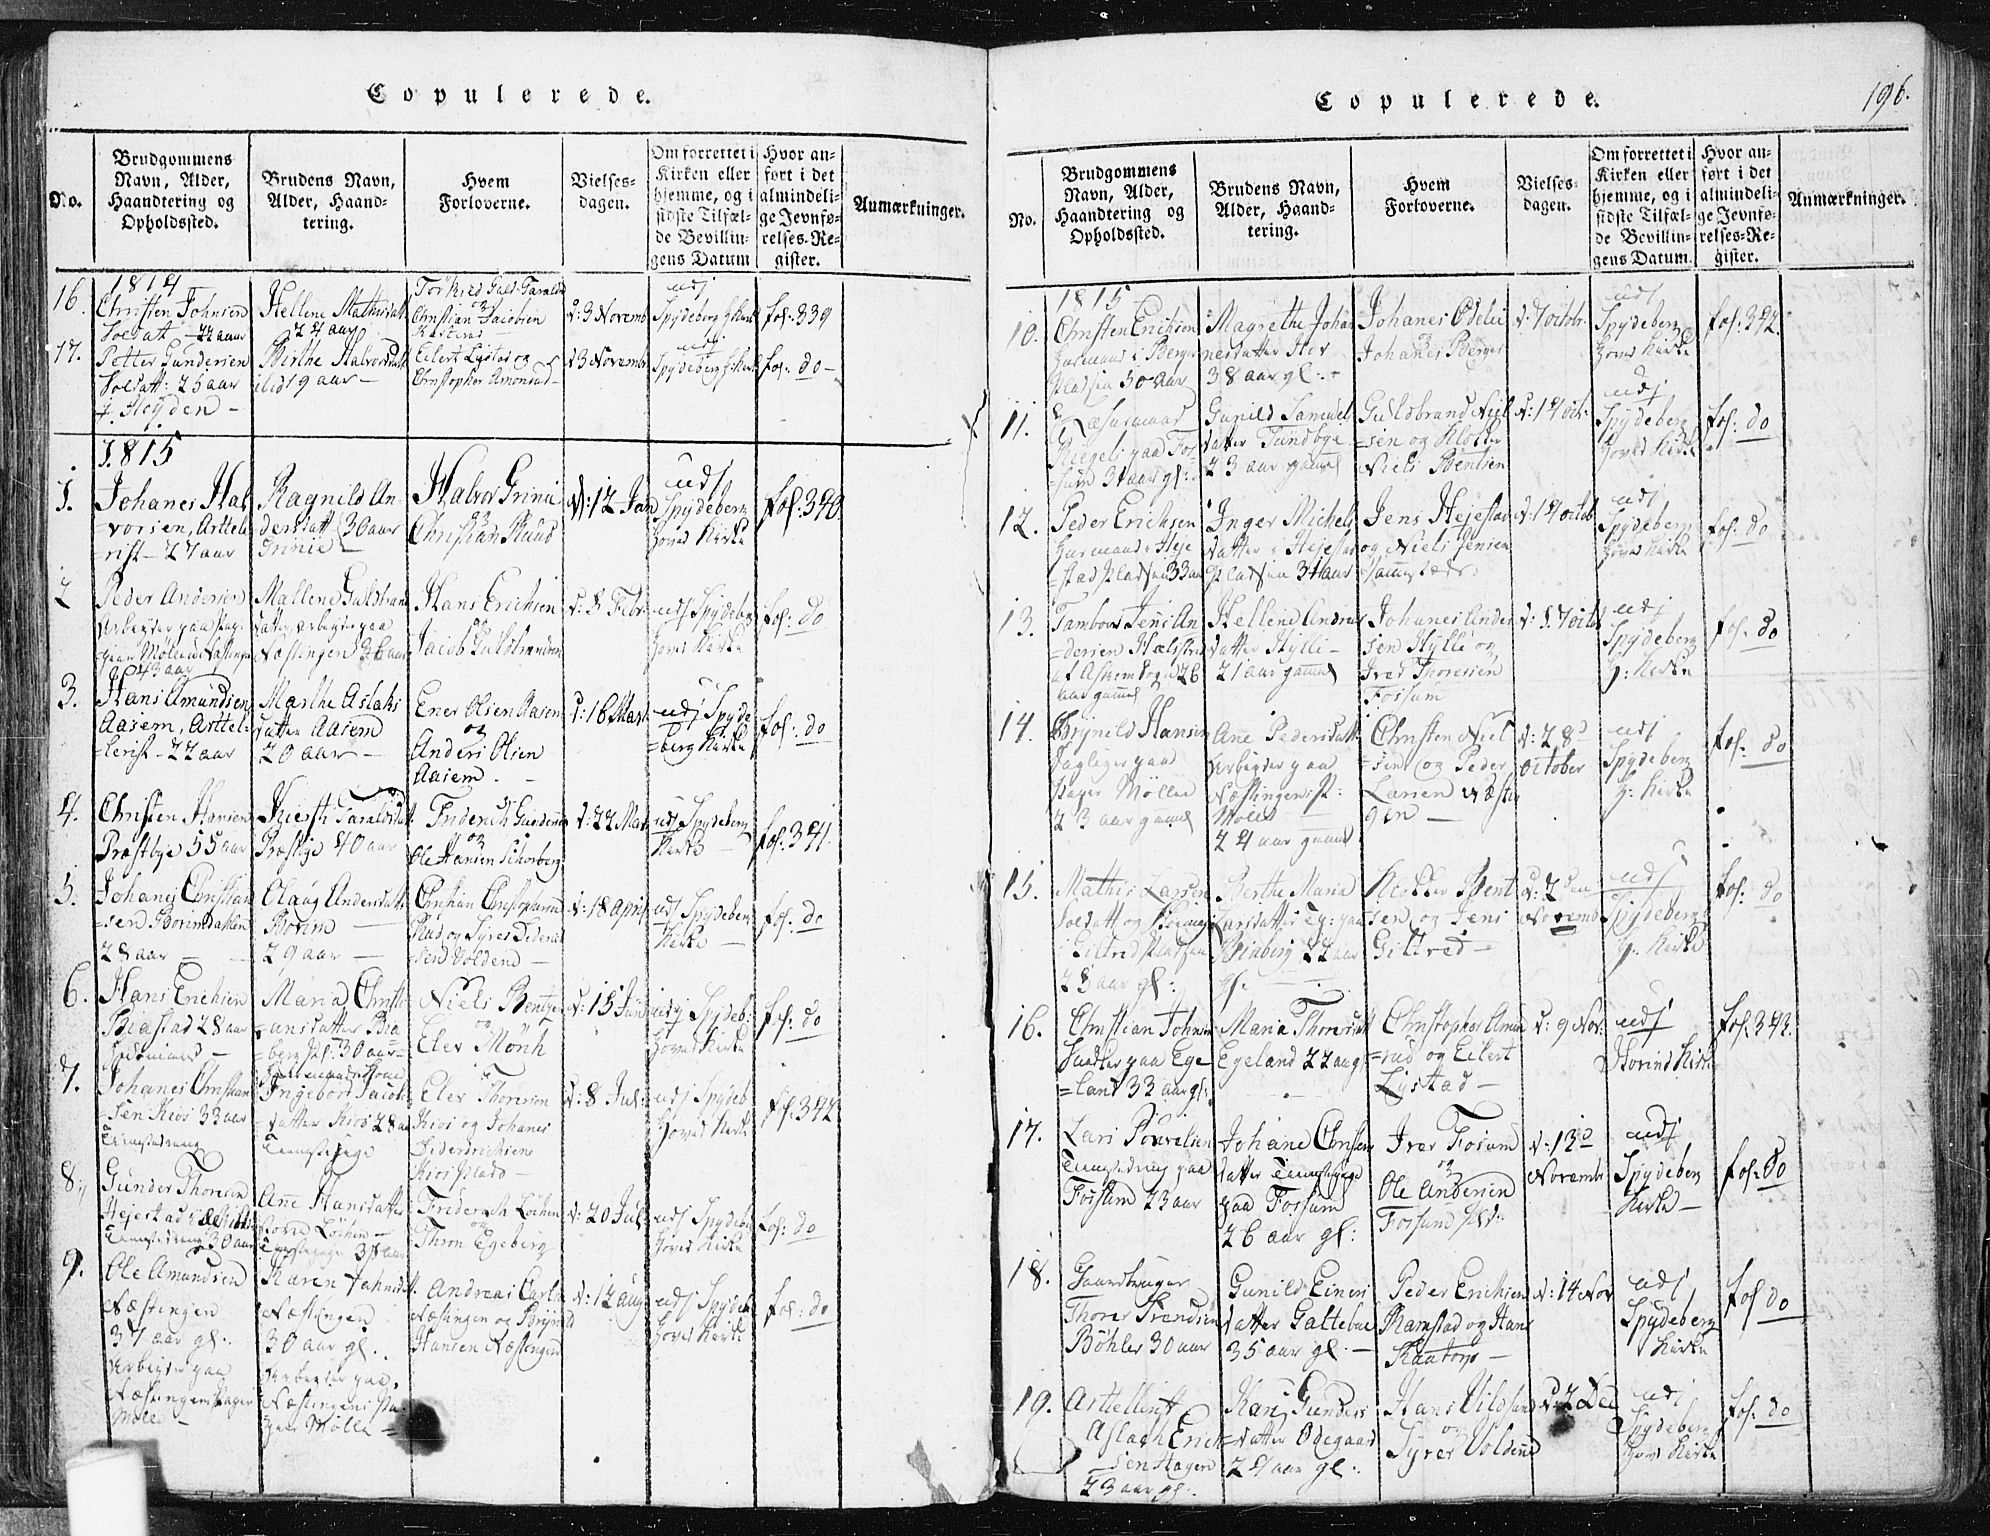 Copulerede.
No.
Brudgommens
Navn, Alder,
Haandtering og
Opholdssted.
Brudens Navn,
Alder, Haand-
tering.
Hvem
Forloverne.
Vielses-
dagen.
Om forrettet i
Kirken eller
hjemme, og i
sidste Tilfæl-
de Bevillin-
gens Datum
Hvor an-
ført i det
almindeli-
ge Jevnfø-
relses-Re-
gister.
Anmærkninger.
1814
16.
Christen Johnsen
Soldat 22 aar
Hellene Mathisdatt
24 aar
og
Christian Jacobsen
d: 3 Novemb
udj
Spydeberg H: Kirke
fol: 339
17.
Petter Gundersen
Soldatt: 25 aar
Berthe Halvorsdatt
19 aar
Eilert Lystad og
Christopher Amonrud
d 3 Novembr
udj
Spydeberg H: Kirke
fol: do
1815
1.
Johanes Hal
=vorsen, Arttele
=rist 27 aar
Ragnild An
dersdatt 30 aar
Grinie
Halvor Grinie
og
Christian Ruud
d: 12 Jan
udj
Spydeberg
Hoved Kirke
fol: 340
2
Peder Andersen
Arbeyder paa Pa-
43 aar
Mallene Guldbrand
datter, Arbeyder paa
Næstingen 36 aar
Hans Erichsen
og
Jacob Guldbrandsen
d: 8 Febr
udj Spydeberg
Hoved Kirke
fol: do
3.
Hans Amundsen
Aasem, Arttel-
=lerist 22 aar
Marthe Aslaks
datter Aasem
20 aar
Ener Olsen Aasen
og
Anders Olsen
Aasem.
d: 16 Mart
udj Spyde
=berg Kirke
fol: do
4.
Christen Hansen
Præstbye 55 aar
Kiersti Taraldsdatt
Præstbye 40 aar
Friderich
og
Ole Hansen
d: 22 Mart
udj Spydeberg
Kirke
fol: 341.
5.
Johanes Christian
=sen Borim
28 aar
Olaug Andersdatt
Borim
29 aar
Christian Christophersen
Rud og Syver
sen Voldend
d: 18 April
udj Spydeberg
Kirke
fol: do
6.
Hans Erichsen
28 aar
Maria Christi
=ansdatter
30 aar
Niels Bentsen
og
Elev Mørch
d: 15 Juni
udj Spydeb:
Hoved Kirke
fol: do
7.
Johanes Christian
=sen Kios 33 aar
Tienestedreng
Ingebor Jacobs
=datter Kios 28 aar
Tienestepige
Elev Thoresen
Kios og Johanes
Diderichsen
Kios Plads
d: 8 Jul:
udj Spydeb
Hoved Kirke
fol: 342
8.
Gunder Thoresen
Hejestad
Tienestedreng 30 aar
Ane Hansdatter
Løchen
Tienestepige
Friderich Løchen
og
Thron Egeberg
d: 20 Jul
udj Spydeb
Hoved Kirke
fol: do
9.
Ole Amundsen
Næstingen
37 aar gl:
Arbeyder paa
Næstingens Papiir
Mølle
Karen
Næstingen
30 aar gl.
Arbeyder paa
Næstingens Pa-
piir Mølle =
Andreas Carlsen
Næstingen og Brynild
Hansen Næstingen
d: 12 Aug
udj Spydeb
Hoved Kirke
fol: do
Copulerede.
196.
No.
Brudgommens
Navn, Alder,
Haandtering og
Opholdssted.
Brudens Navn,
Alder, Haand-
tering.
Hvem
Forloverne.
Vielses-
dagen.
Om forrettet i
Kirken eller
hjemme, og i
sidste Tilfæl-
de Bevillin-
gens Datum.
Hvor an-
ført i det
almindeli-
ge Jevnfø-
relses-Re-
gister.
Anmærkninger.
1815
10.
Christen Erichsen
Huusmand i Berger
Pladsen 50 Aar
Magrethe Johan
nesdatter
38 aar gl:
Johanes Ødelie
og
Johanes Berger
d: 7 octob
udj
Spydeberg
Hoved Kirke
fol: 342.
11.
paa Fos
=sum 31 aar gl:
Gunild Samuel
datter Sundbye
23 aar gamel
Guldbrand Niel
=sen og Klokker
Niels Bentsen
d: 14 oct
udj
Spydeberg
Hoved Kirke
fol: do
12.
Peder Erichsen
Huusmand i Heje
=stad Pladsen 33 aar
Inger Michels
datter i Hejestad
Pladsen 34 aar
Jens Hejestad
og Niels Jensen
samestæds
d: 14 octob
udj
Spydeberg
Hoved Kirke
fol: do
13.
Tambour Jens An
=dersen
af Askim Sogn 26
aar gamel
Hellene Andreas
datter Hylli
21 aar gamel
Johanes Ander
sen Hylli og
Iver Thoresen
Fossum
d: 17 octob
udj
Spydeberg
H: Kirke
fol: do
14.
Brynild Hansen
Dagleyer paa
Papiir Møllen
23 aar gamel
Ane Pedersdatt
Arbeyder paa
Næstingens P:
Mølle
24 aar gamel
Christen Niel
=sen og Peder
Larsen Næstin
gen
d: 28d
October
udj
Spydeberg
H: Kirke
fol: do
15.
Mathis Larsen
Soldatt og
i Giltred Pladsen
28 aar gl:
Berthe Maria
Larsdatter
22 aar
gl.
Klokker Bent
sen og Jens
Giltred
d: 2den
Novemb
udj
Spydeberg
H: Kirke
fol: do
16.
Christian Johnsen
paa Ege
=land 33 aar gl:
Maria Thoresdatt
Egeland 22 aar gl
Christopher Amon
=rud og Eilert
Lystad
d: 9 Nov:
udj
Hovind Kirke
fol: 343.
17.
Lars Povelsen
Tienestedreng paa
Fossum 23 aar
Johane Christens
datter Tienestepige
paa Fossum
26 aar gl:
Iver Fossum
og
Ole Andersen
Fossum
d: 13d
Novembr
udj
Spydeberg
Kirke
fol: do
18.
Gaardbruger
Thorer Trondsen
Bøhler 30 aar
Gunild Einers
datter Galtebae
35 aar gl.
Peder Erichsen
Ramstad og Hans
d: 14 Nov
udj
Spydeberg
Kirke
fol do
19.
Artellerist
Aslach Erich
=sen Hagen
23 aar gl:
Kari Gunders
=datter Ødegaard
24 aar gl:
Hans
og
Syver Voldend
d: 2 Dec
udj
Spydeberg
Hoved Kirke
fol: do